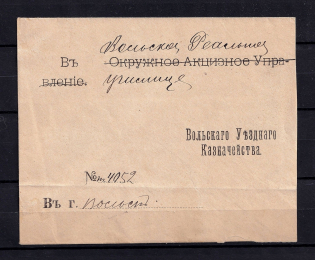 Вольское Реальное
Въ Окружное Акцизное Упра-
вленіе. училище
Вольскаго Уѣзднаго
Казначейства.
№ 4052
Въ г. Вольскъ.